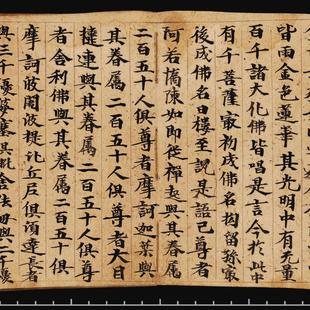 皆雨金色蓮華其光明中有无量
百千諸大化佛皆唱是言今於此中
有千菩薩㝡初成佛名拘留孫㝡
後成佛名曰樓至說是語已尊者
阿若憍陳如即從禪起與其眷屬
二百五十人俱尊者摩訶迦葉與
其眷屬二百五十人俱尊者大目
揵連與其眷屬二百五十人俱尊
者舍利佛與其眷屬二百五十人俱
摩訶波闍波提比丘尼俱湏達長者
與三千優婆塞俱毗舍佉母與二千優